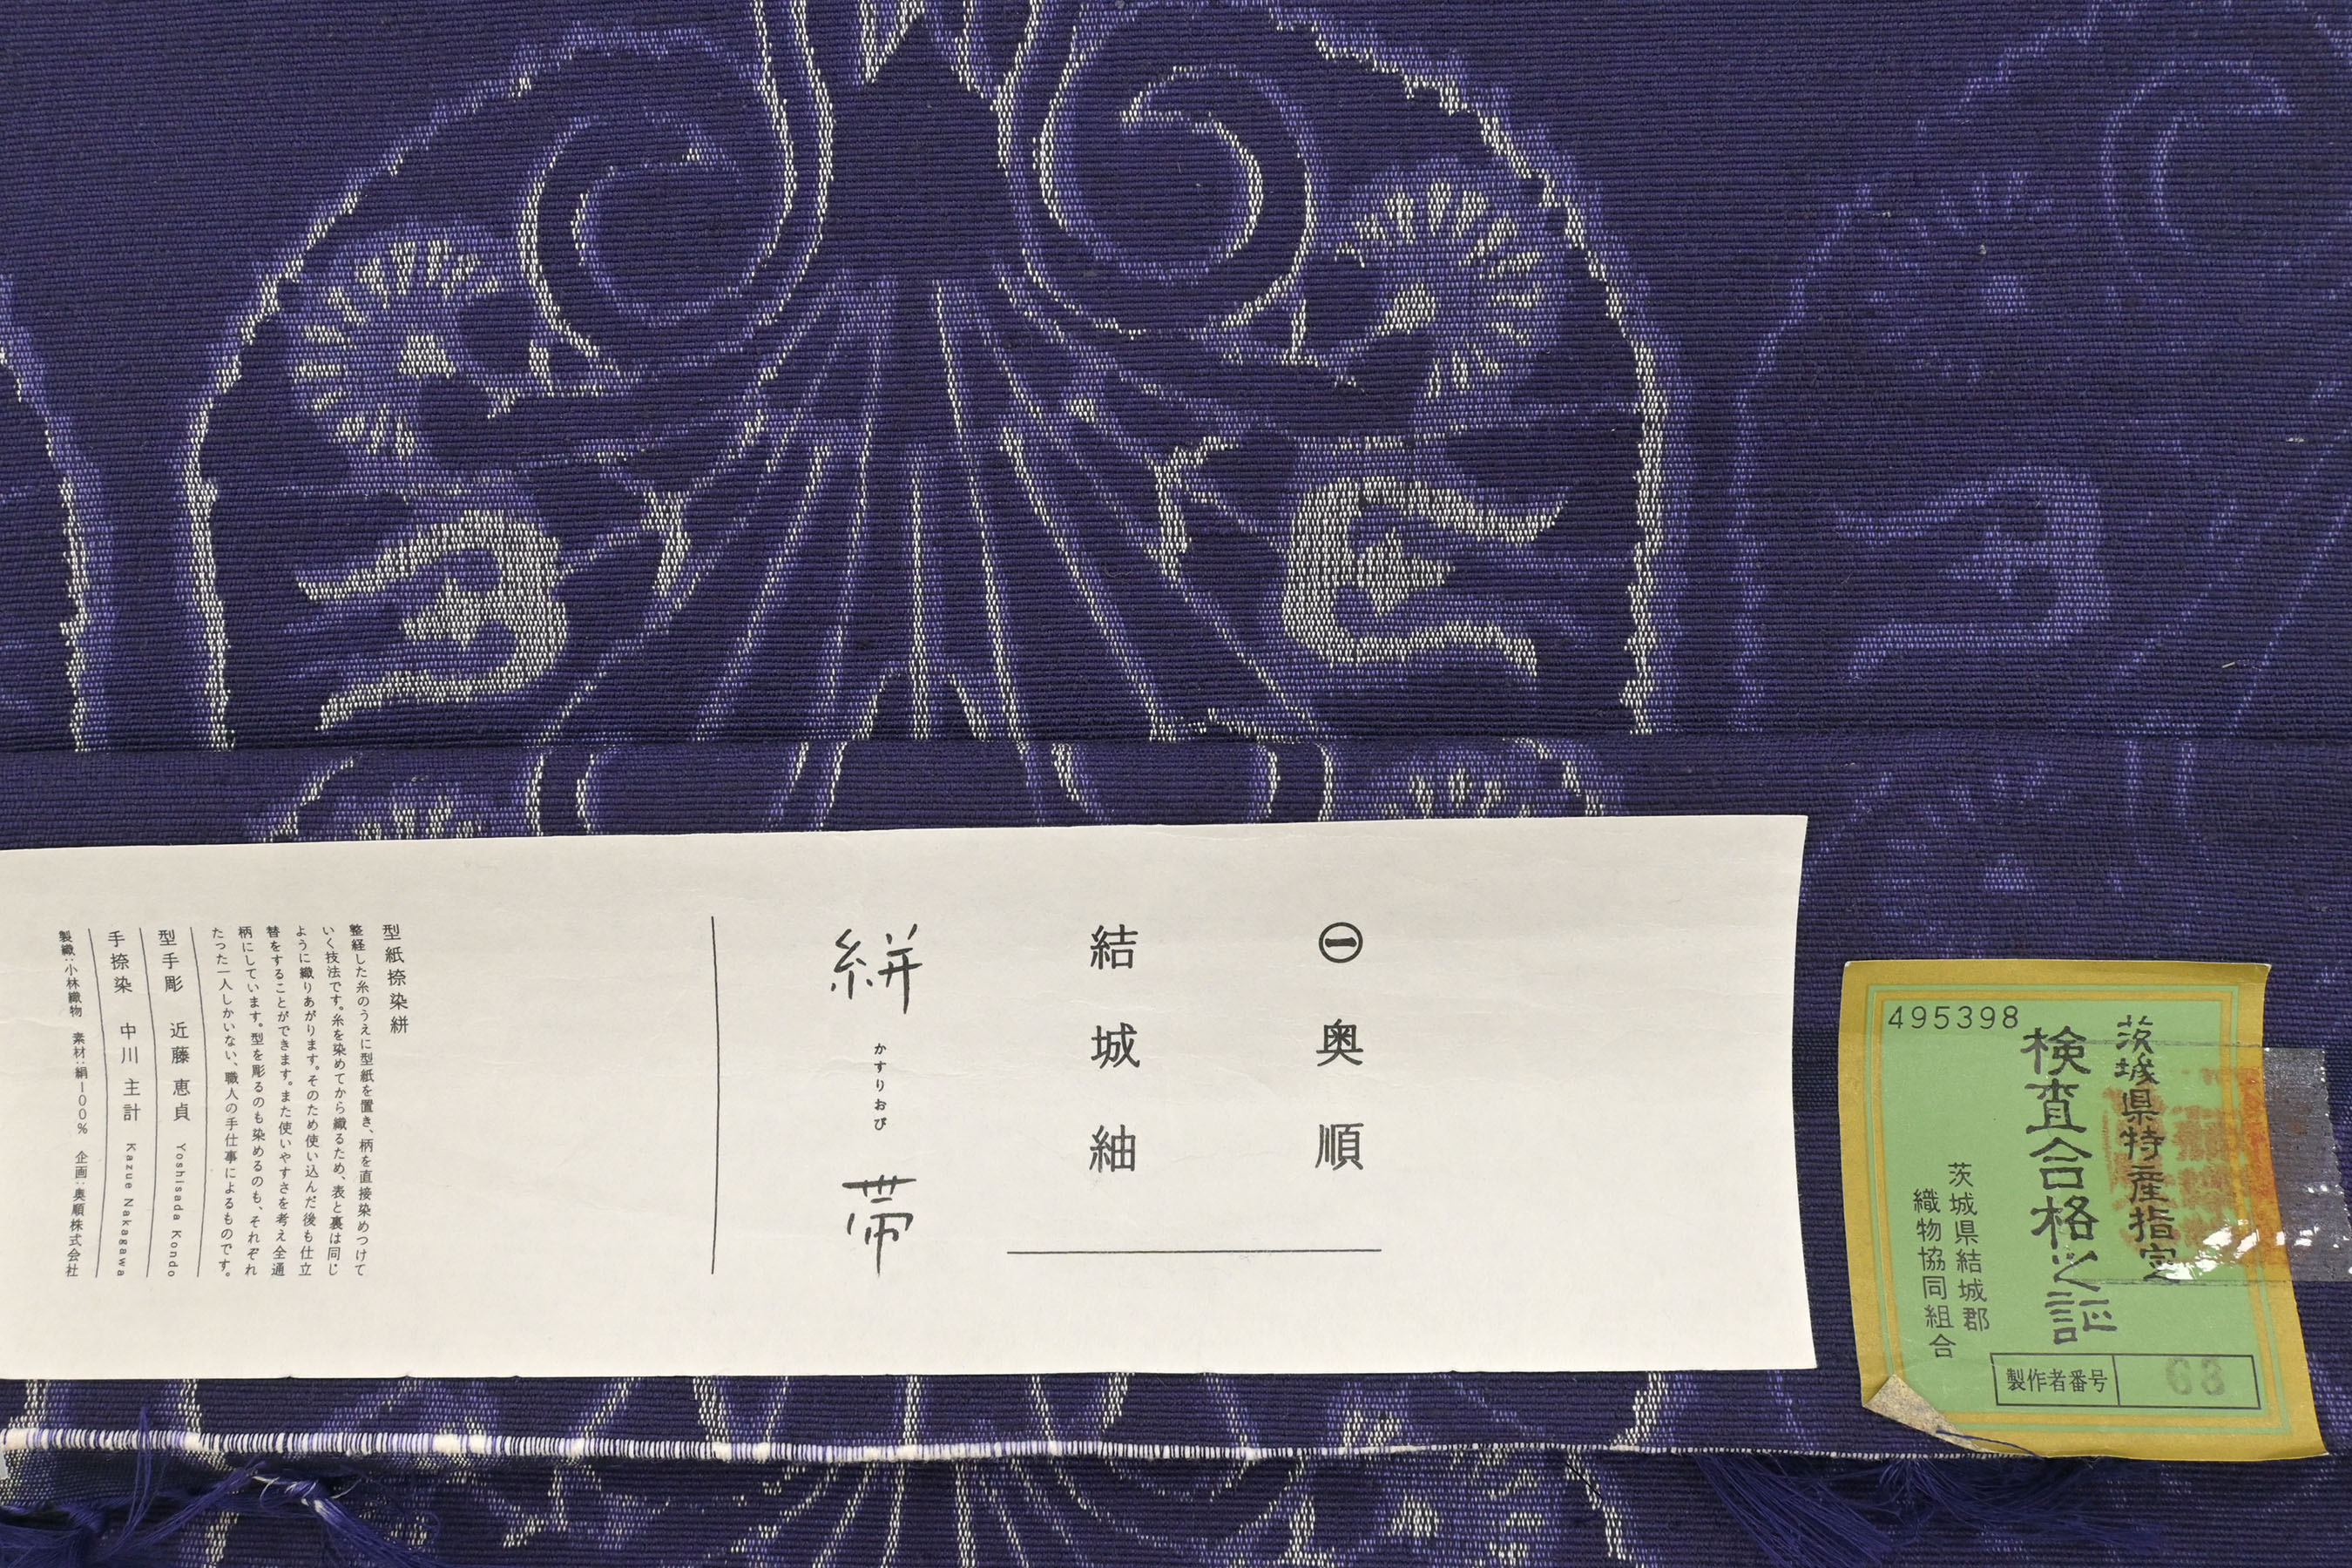 ㊀奥順
結城紬
絣 かすりおび 帯
型紙捺染絣
整経した糸のうえに型紙を置き、柄を直接染めつけて
いく技法です。糸を染めてから織るため、表と裏は同じ
ように織りあがります。そのため使い込んだ後も仕立
替をすることができます。また使いやすさを考え全通
柄にしています。型を彫るのも染めるのも、それぞれ
たった一人しかいない、職人の手仕事によるものです。
型手彫 近藤 恵貞 Yoshisada Kondo
手捺染 中川 主計 Kazue Nakagawa
製織:小林織物 素材:絹100% 企画:奥順株式会社
495398
茨城県特産指定
検査合格之証
茨城県結城郡
織物協同組合
製作者番号 63